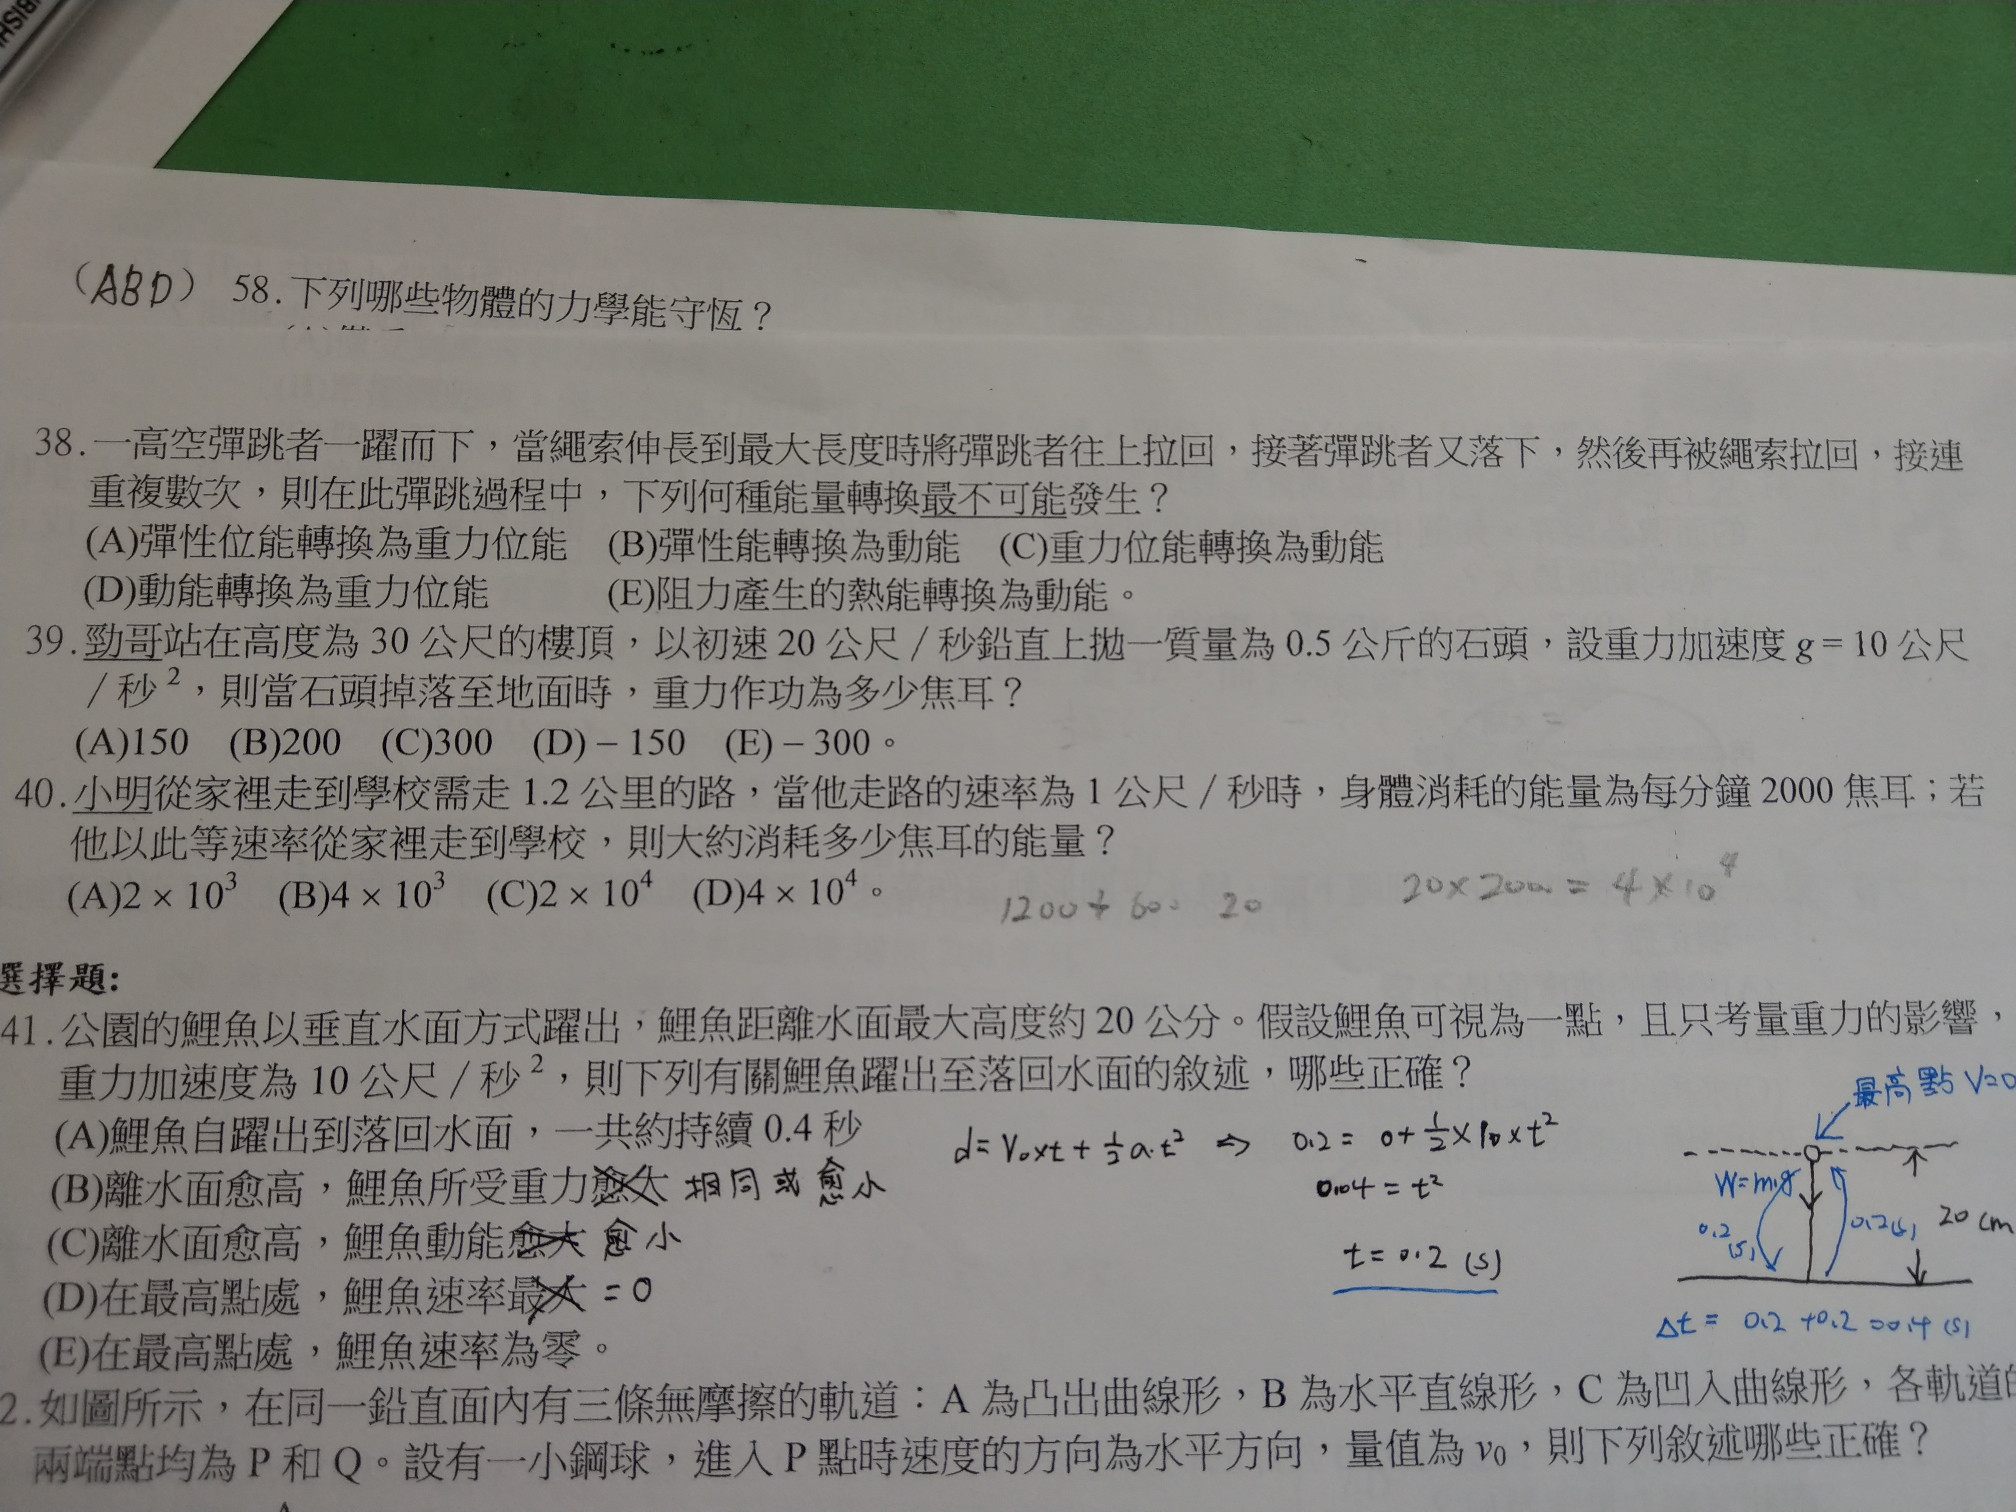 (ABD) 58.下列哪些物體的力學能守恆？
38.一高空彈跳者一躍而下，當繩索伸長到最大長度時將彈跳者往上拉回，接著彈跳者又落下，然後再被繩索拉回，接連
重複數次，則在此彈跳過程中，下列何種能量轉換最不可能發生？
(A)彈性位能轉換為重力位能 (B)彈性能轉換為動能 (C)重力位能轉換為動能
(D)動能轉換為重力位能 (E)阻力產生的熱能轉換為動能。
39.勁哥站在高度為 30 公尺的樓頂，以初速 20 公尺／秒鉛直上拋一質量為 0.5 公斤的石頭，設重力加速度 g = 10 公尺
／秒²，則當石頭掉落至地面時，重力作功為多少焦耳？
(A)150 (B)200 (C)300 (D)－150 (E)－300。
40.小明從家裡走到學校需走 1.2 公里的路，當他走路的速率為 1 公尺／秒時，身體消耗的能量為每分鐘 2000 焦耳；若
他以此等速率從家裡走到學校，則大約消耗多少焦耳的能量？
(A)2 × 10³ (B)4 × 10³ (C)2 × 10⁴ (D)4 × 10⁴。
1200÷60= 20
20×2000 = 4×10⁴
選擇題:
41.公園的鯉魚以垂直水面方式躍出，鯉魚距離水面最大高度約 20 公分。假設鯉魚可視為一點，且只考量重力的影響，
重力加速度為 10 公尺／秒²，則下列有關鯉魚躍出至落回水面的敘述，哪些正確？
(A)鯉魚自躍出到落回水面，一共約持續 0.4 秒
(B)離水面愈高，鯉魚所受重力愈大 相同或愈小
(C)離水面愈高，鯉魚動能愈大 愈小
(D)在最高點處，鯉魚速率最大 =0
(E)在最高點處，鯉魚速率為零。
d=V₀×t+½a·t² ⇒ 0.2= 0+½×10×t²
0.04=t²
t=0.2 (s)
最高點 V=0
W=mg
0.2
(s)
0.2(s)
20 cm
Δt= 0.2+0.2=0.4 (s)
2.如圖所示，在同一鉛直面內有三條無摩擦的軌道：A 為凸出曲線形，B 為水平直線形，C 為凹入曲線形，各軌道的
兩端點均為 P 和 Q。設有一小鋼球，進入 P 點時速度的方向為水平方向，量值為 v₀，則下列敘述哪些正確？